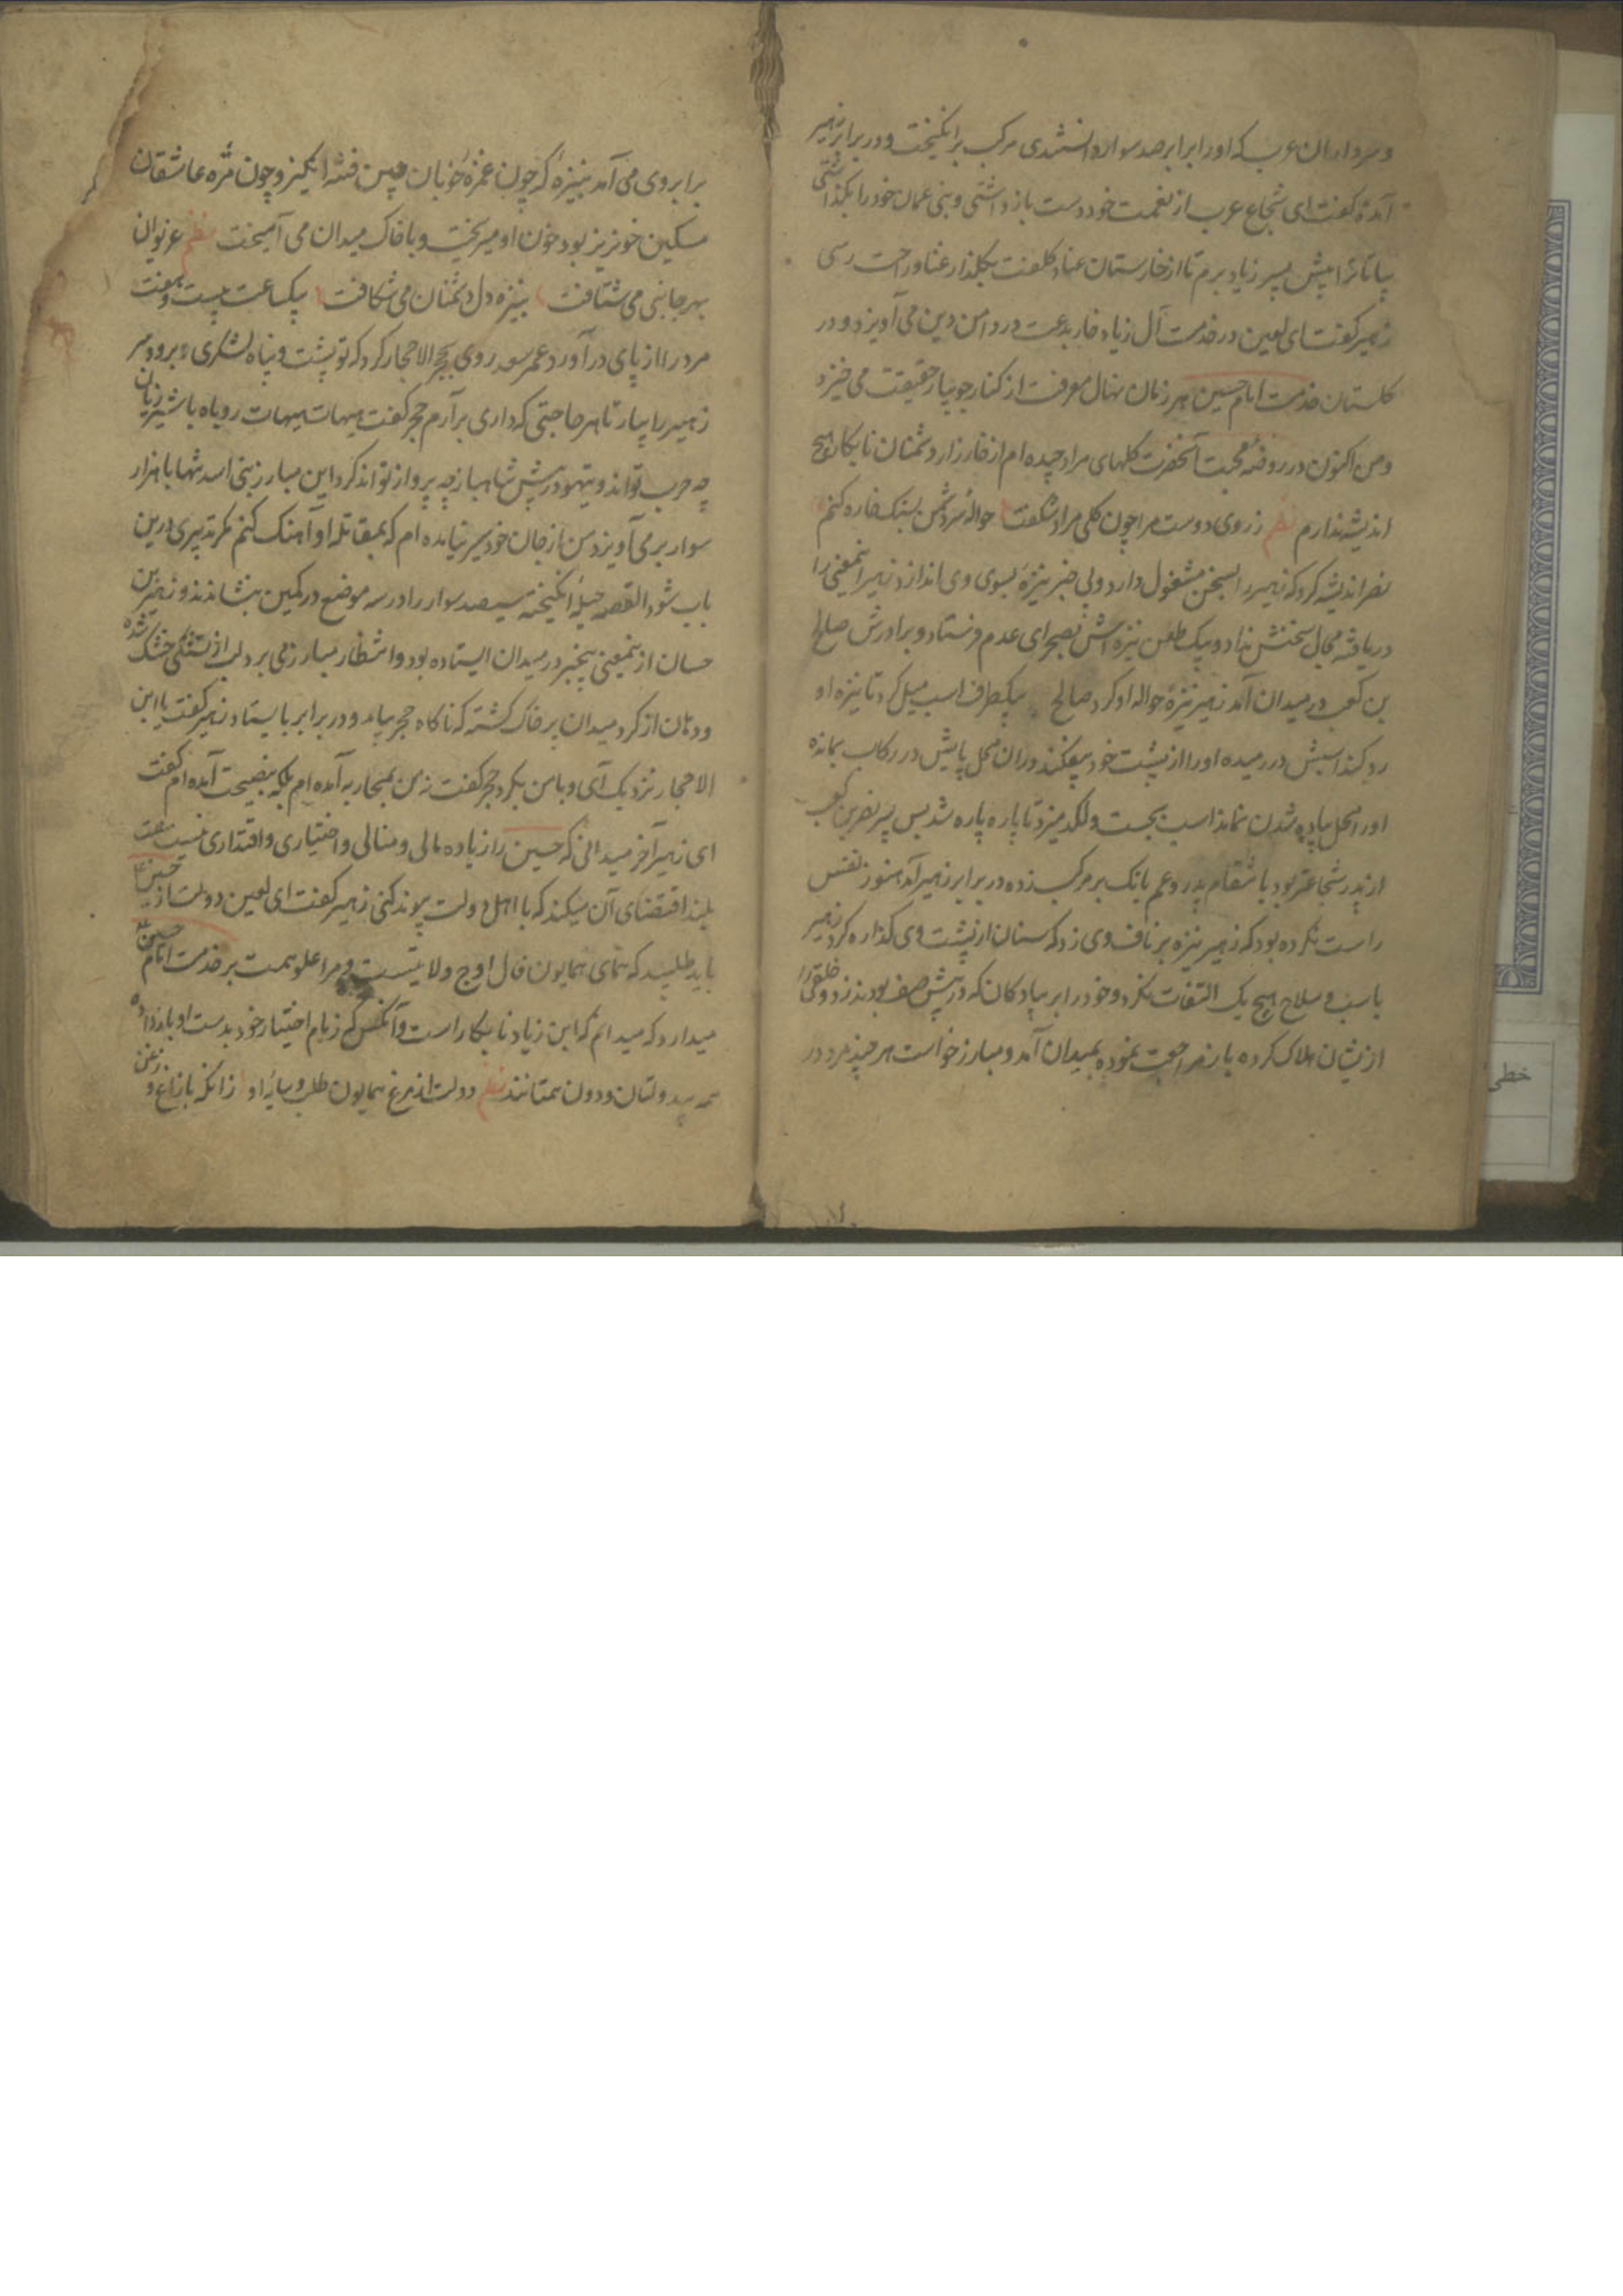 و سرداران عرب که او را برابر صد سوار دانستندی مرکب برانگیخت و در برابر زهیر
آمده گفت ای شجاع عرب از نعمت خود دست بازداشتی و بنی عمان خود را بگذاشتی
بیا تا ترا پیش پسر زیاد برم تا از خارستان عنا و کلفت بگلذار غنا و راحت رسی
زهیر گفت ای لعین در خدمت آل زیاد خار بدعت در دامن دین می آویزد و در
گلستان خدمت امام حسین هر زمان نهال معرفت از کنار جویبار حقیقت می خیزد
و من اکنون در روضه محبت آنحضرت گلهای مراد چیده ام از خار زار دشمنان نابکار هیچ
اندیشه ندارم نظم ز روی دوست مرا چون گل مراد شکفت حواله سر دشمن بسنگ خاره کنم
نضر اندیشه کرد که زهیر را بسخن مشغول دارد و بی خبر نیزه بسوی وی اندازد زهیر اینمعنی را
دریافته مجال سخنش نداد و بیک طعن نیزه اش بصحرای عدم فرستاد و برادرش صالح
بن کعب در میدان آمد زهیر نیزه حواله او کرد صالح بیکطرف اسب میل کرد تا نیزه او
رد کند اسبش در رمیده او را از پشت خود بیفکند و در آن محل پایش در رکاب بمانده
او را محل پیاده شدن نماند اسب بجست و لگد میزد تا پاره پاره شد پس پسر نضر بن کعب
از پدر شجاعتر بود بانتقام پدر و عم بانگ بر مرکب زده در برابر زهیر آمد هنوز نفس
راست نکرده بود که زهیر نیزه بر ناف وی زد که سنان از پشت وی گذاره کرد زهیر
باسب و سلاح هیچ یک التفات نکرد و خود را بر پیادگان که در پیش صف بودند زد و خلقی را
از ایشان هلاک کرده باز مراجعت نموده بمیدان آمد و مبارز خواست هر چند مرد در
برابر وی می آمد بنیزه که چون غمزه خوبان چین فتنه انگیز و چون مژه عاشقان
مسکین خونریز بود خون او میریخت و با خاک میدان می آمیخت نظم غریوان
بهر جانبی می شتافت بنیزه دل دشمنان می شکافت بیکساعت بیست و هفت
مرد را از پای در آورد عمر سعد روی بحجر الاحجار کرد که تو پشت و پناه لشکری برو و سر
زهیر را بیار تا هر حاجتی که داری برآرم حجر گفت هیهات هیهات روباه با شیر ژیان
چه حرب تواند و تیهو در پیش شاهباز چه پرواز تواند کرد این مبارز بنی اسد تنها با هزار
سوار بر می آویزد من از جان خود سیر نیامده ام که بمقاتله او آهنگ کنم مگر تدبیری درین
باب شود القصه حیله انگیخته سیصد سوار را در سه موضع در کمین بنشاندند و زهیر بن
حسان از ینمعنی بیخبر در میدان ایستاده بود و انتظار مبارز می برد لب از تشنگی خشک شده
و دهان از گرد میدان پر خاک گشته که ناگاه حجر بیامد و در برابر بایستاد زهیر گفت یا ابن
الاحجار نزدیک آی و با من بگرد حجر گفت نه من بمحاربه آمده ام بلکه بنصیحت آمده ام گفت
ای زهیر آخر میدانی که حسین را زیاده مالی و منالی و اختیاری و اقتداری نیست همت
بلند اقتضای آن میکند که با اهل دولت پیوند کنی زهیر گفت ای لعین دولت از حسین
باید طلبید که همای همایون فال اوج ولایتست و مرا علو همت بر خدمت امام حسین
میدارد که میدانم که ابن زیاد نابکار است و آنکس که زمام اختیار خود بدست او باز داده
همه بیدولتان و دون همتانند نظم دولت از مرغ همایون طلب و سایه او زانکه با زاغ و زغن
خطی